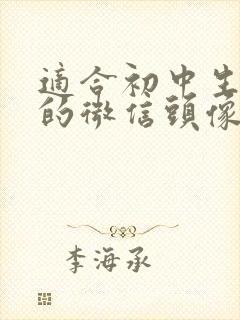 適合初中生
的微信頭像
李海承